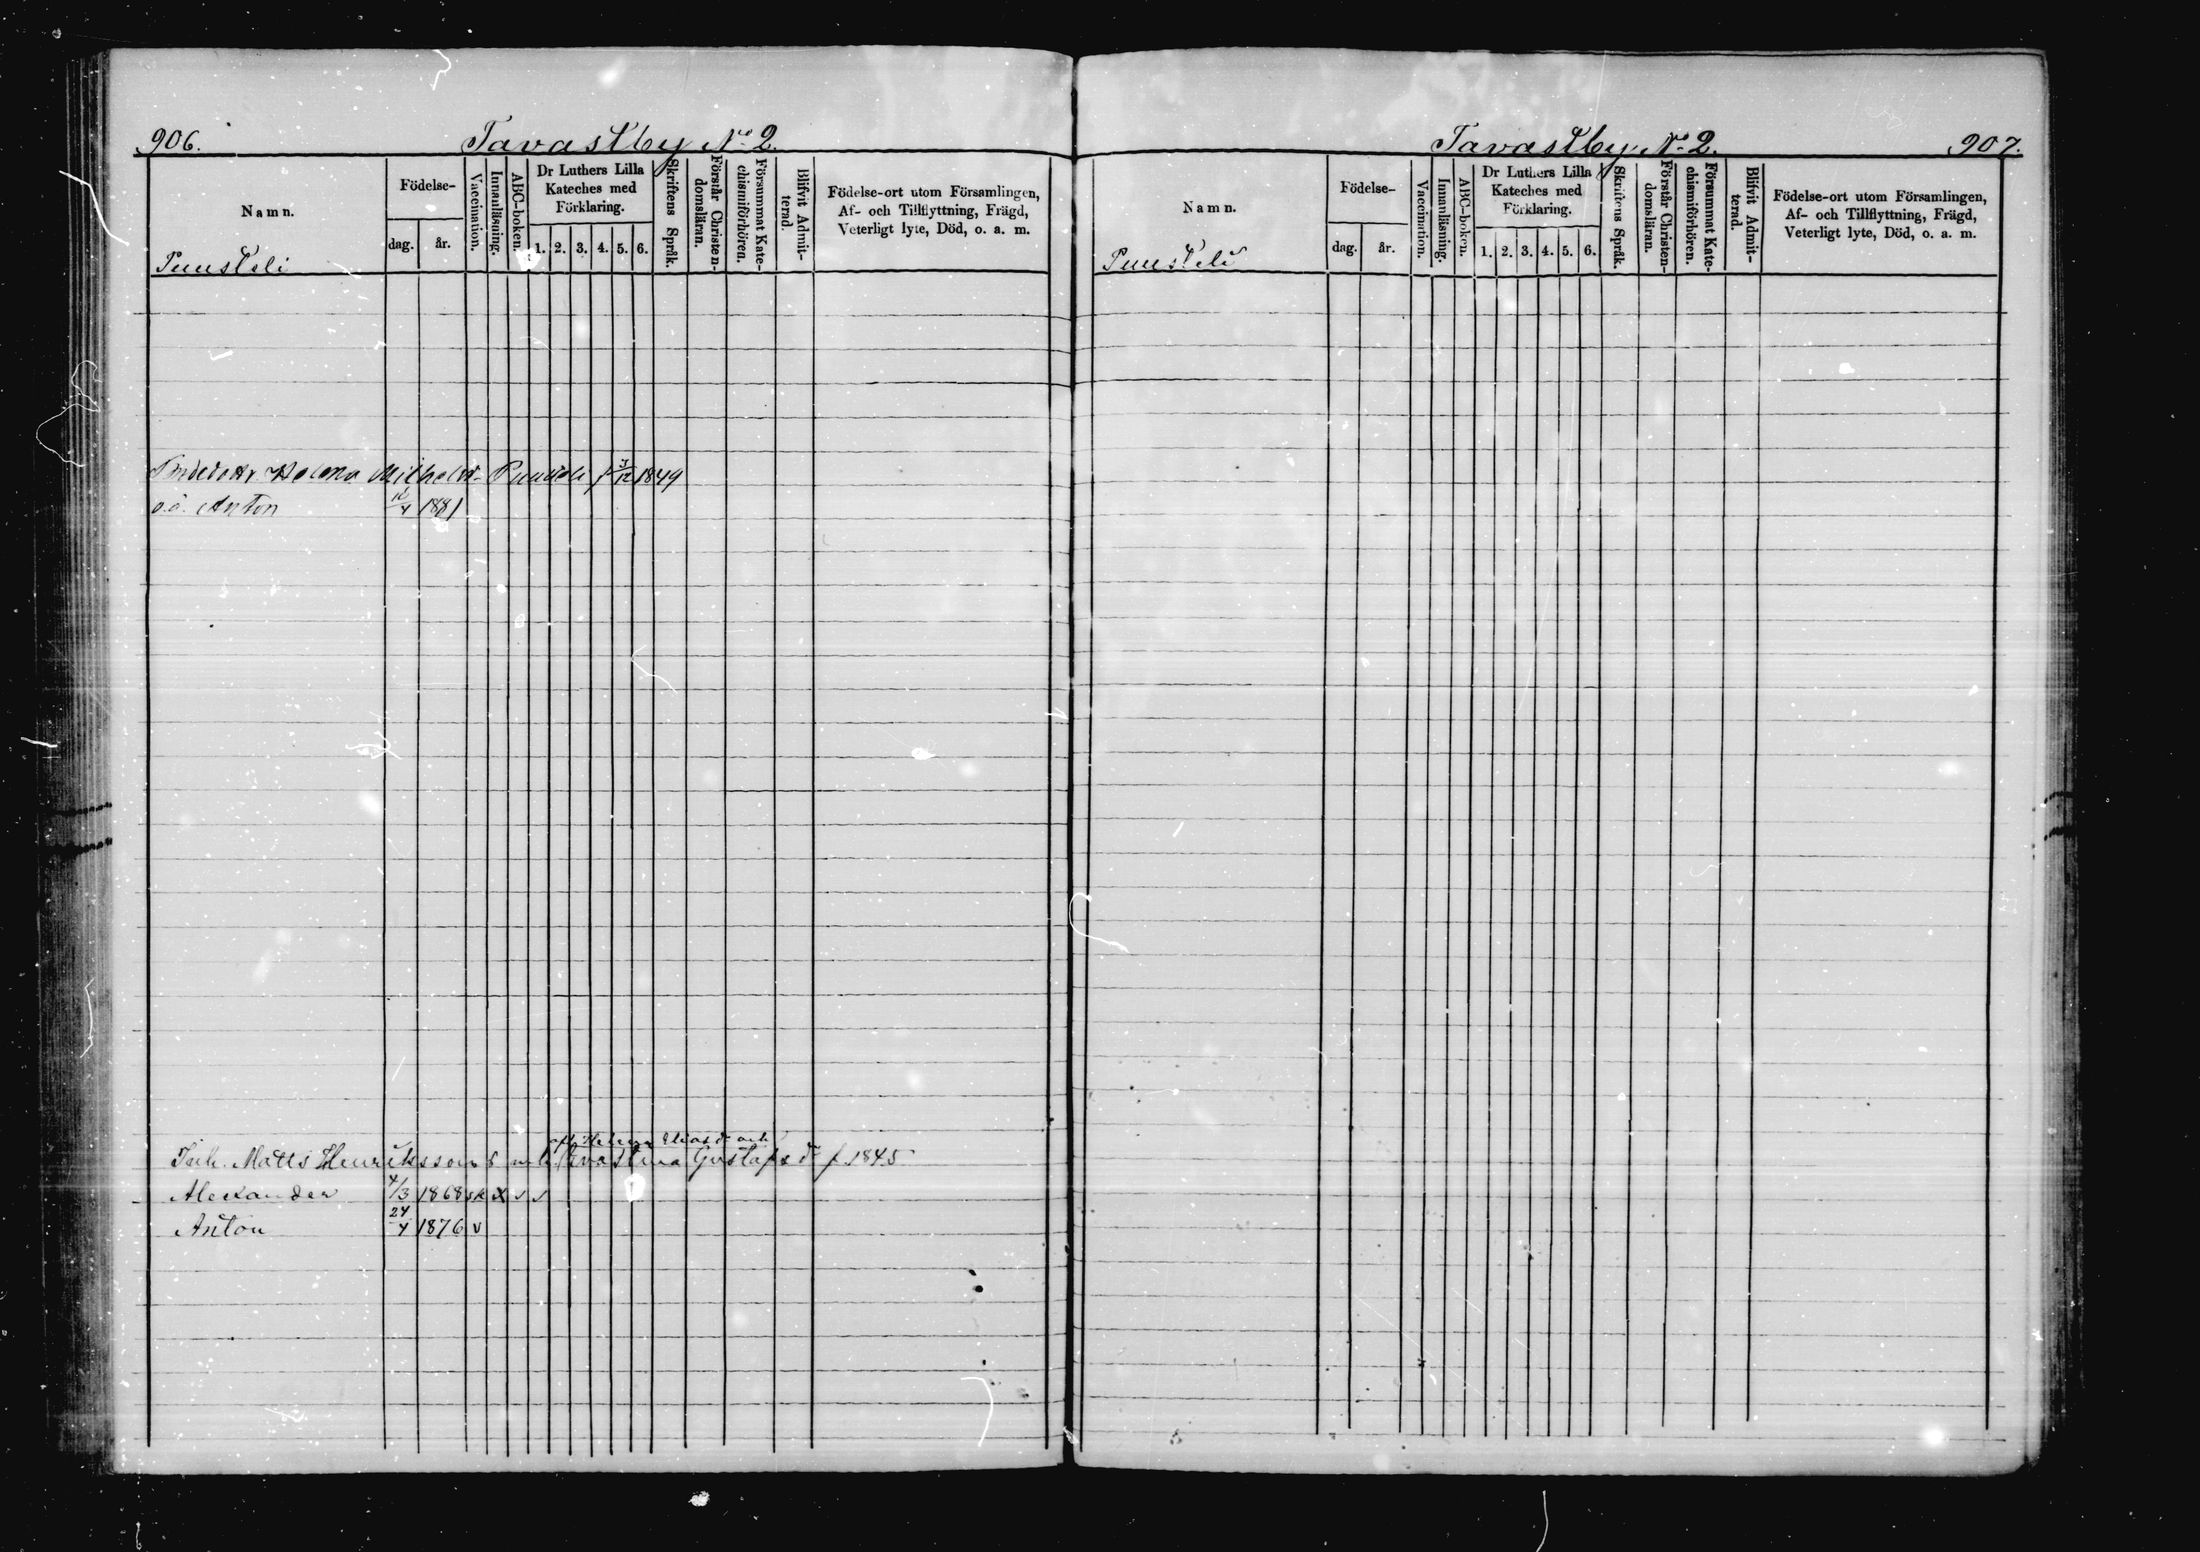 906. Tavastby No 2.
Namn. Födelse- dag. år. Vaccination. Innanläsning. ABC-boken. Dr Luthers Lilla Kateches med Förklaring. 1. 2. 3. 4. 5. 6. Skriftens Språk. Förstår Christendomsläran. Försummat Katechismiförhören. Blifvit Admitterad. Födelse-ort utom Församlingen, Af- och Tillflyttning, Frägd, Veterligt lyte, Död, o. a. m.
Puuskeli
Helena Puuskeli f 3/12 1849
o.ä. Anton 1881
Helena och
Inh. Matts Henrikssons Gustafsd f 1845
Alexander 4/3 1868 sk x v v
Anton 24/4 1876 v
Tavastby No 2. 907.
Namn. Födelse- dag. år. Vaccination. Innanläsning. ABC-boken. Dr Luthers Lilla Kateches med Förklaring. 1. 2. 3. 4. 5. 6. Skriftens Språk. Förstår Christendomsläran. Försummat Katechismiförhören. Blifvit Admitterad. Födelse-ort utom Församlingen, Af- och Tillflyttning, Frägd, Veterligt lyte, Död, o. a. m.
Puuskeli